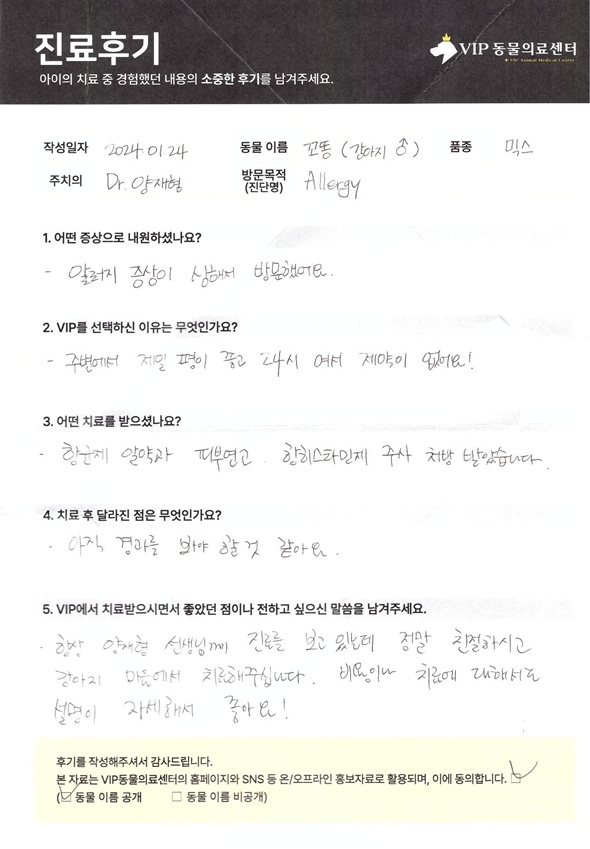 진료후기
VIP 동물의료센터
VIP Animal Medical Center
아이의 치료 중 경험했던 내용의 소중한 후기를 남겨주세요.
작성일자 2024.01.24 동물 이름 꼬똥 (강아지 ♂) 품종 믹스
주치의 Dr. 양재형 방문목적 (진단명) Allergy
1. 어떤 증상으로 내원하셨나요?
- 알러지 증상이 심해져 방문했어요.
2. VIP를 선택하신 이유는 무엇인가요?
- 주변에서 제일 평이 좋고 24시 여서 제약이 없어요!
3. 어떤 치료를 받으셨나요?
- 항균제 알약과 피부연고. 항히스타민제 주사 처방 받았습니다.
4. 치료 후 달라진 점은 무엇인가요?
- 아직 경과를 봐야 할 것 같아요.
5. VIP에서 치료받으시면서 좋았던 점이나 전하고 싶으신 말씀을 남겨주세요.
- 항상 양재형 선생님께 진료를 보고 있는데 정말 친절하시고
강아지 마음에서 치료해주십니다. 비용이나 치료에 대해서도
설명이 자세해서 좋아요!
후기를 작성해주셔서 감사드립니다.
본 자료는 VIP동물의료센터의 홈페이지와 SNS 등 온/오프라인 홍보자료로 활용되며, 이에 동의합니다. ☑
(☑ 동물 이름 공개 □ 동물 이름 비공개)